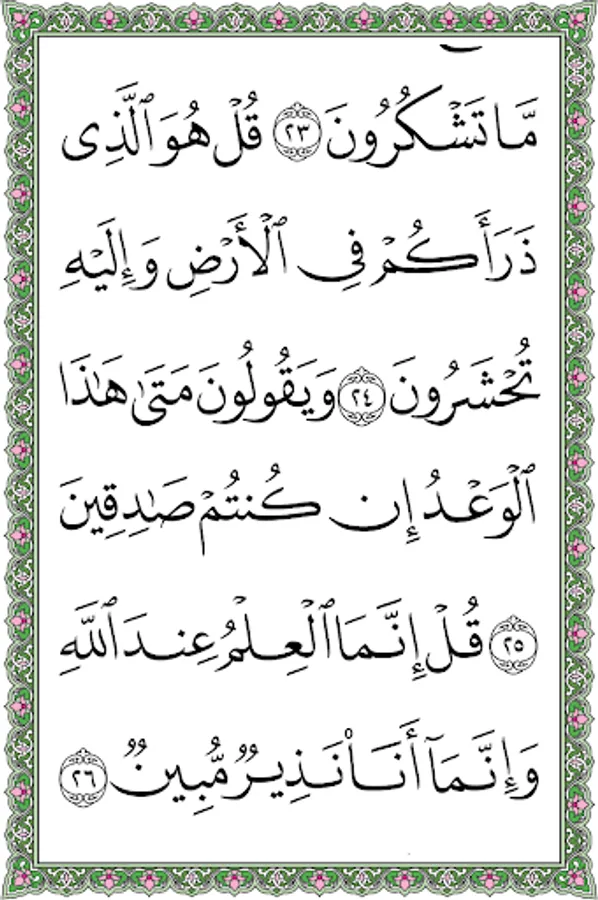 مَّا تَشْكُرُونَ ٢٣ قُلْ هُوَ ٱلَّذِى
ذَرَأَكُمْ فِى ٱلْأَرْضِ وَإِلَيْهِ
تُحْشَرُونَ ٢٤ وَيَقُولُونَ مَتَىٰ هَـٰذَا
ٱلْوَعْدُ إِن كُنتُمْ صَـٰدِقِينَ
٢٥ قُلْ إِنَّمَا ٱلْعِلْمُ عِندَ ٱللَّهِ
وَإِنَّمَآ أَنَا۠ نَذِيرٌ مُّبِينٌ ٢٦